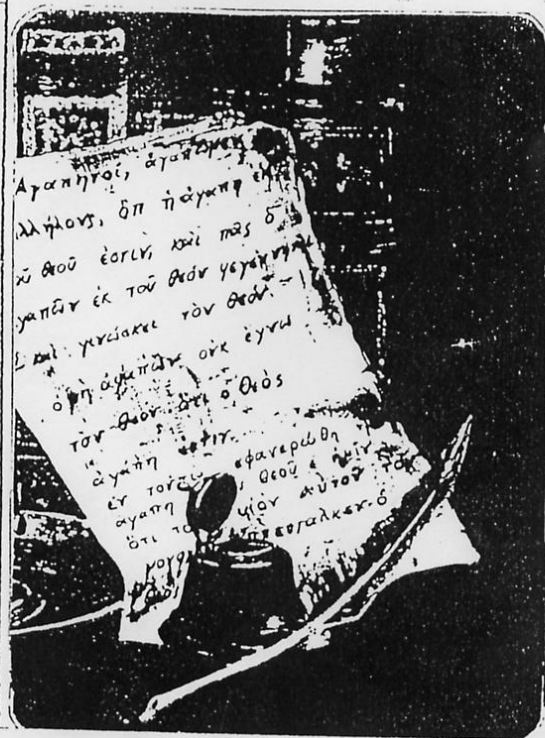 Αγαπητοί, ἀγαπῶμεν
λλήλους, ὅτι ἡ ἀγάπη ἐκ
οῦ θεοῦ ἐστιν, καὶ πᾶς ὁ
γαπῶν ἐκ τοῦ θεόυ γεγέννηται
καὶ γινώσκει τὸν θεόν.
ὁ μὴ ἀγαπῶν οὐκ ἔγνω
τὸν θεὸν ὅτι ὁ θεὸς
ἀγάπη ἐστιν.
ἐν τούτῳ ἐφανερώθη
ἀγαπη θεοῦ ἐ ἡμῖν
ὅτι το υἱὸν αὐτοῦ τὸν
μονογ πέσταλκεν ὁ